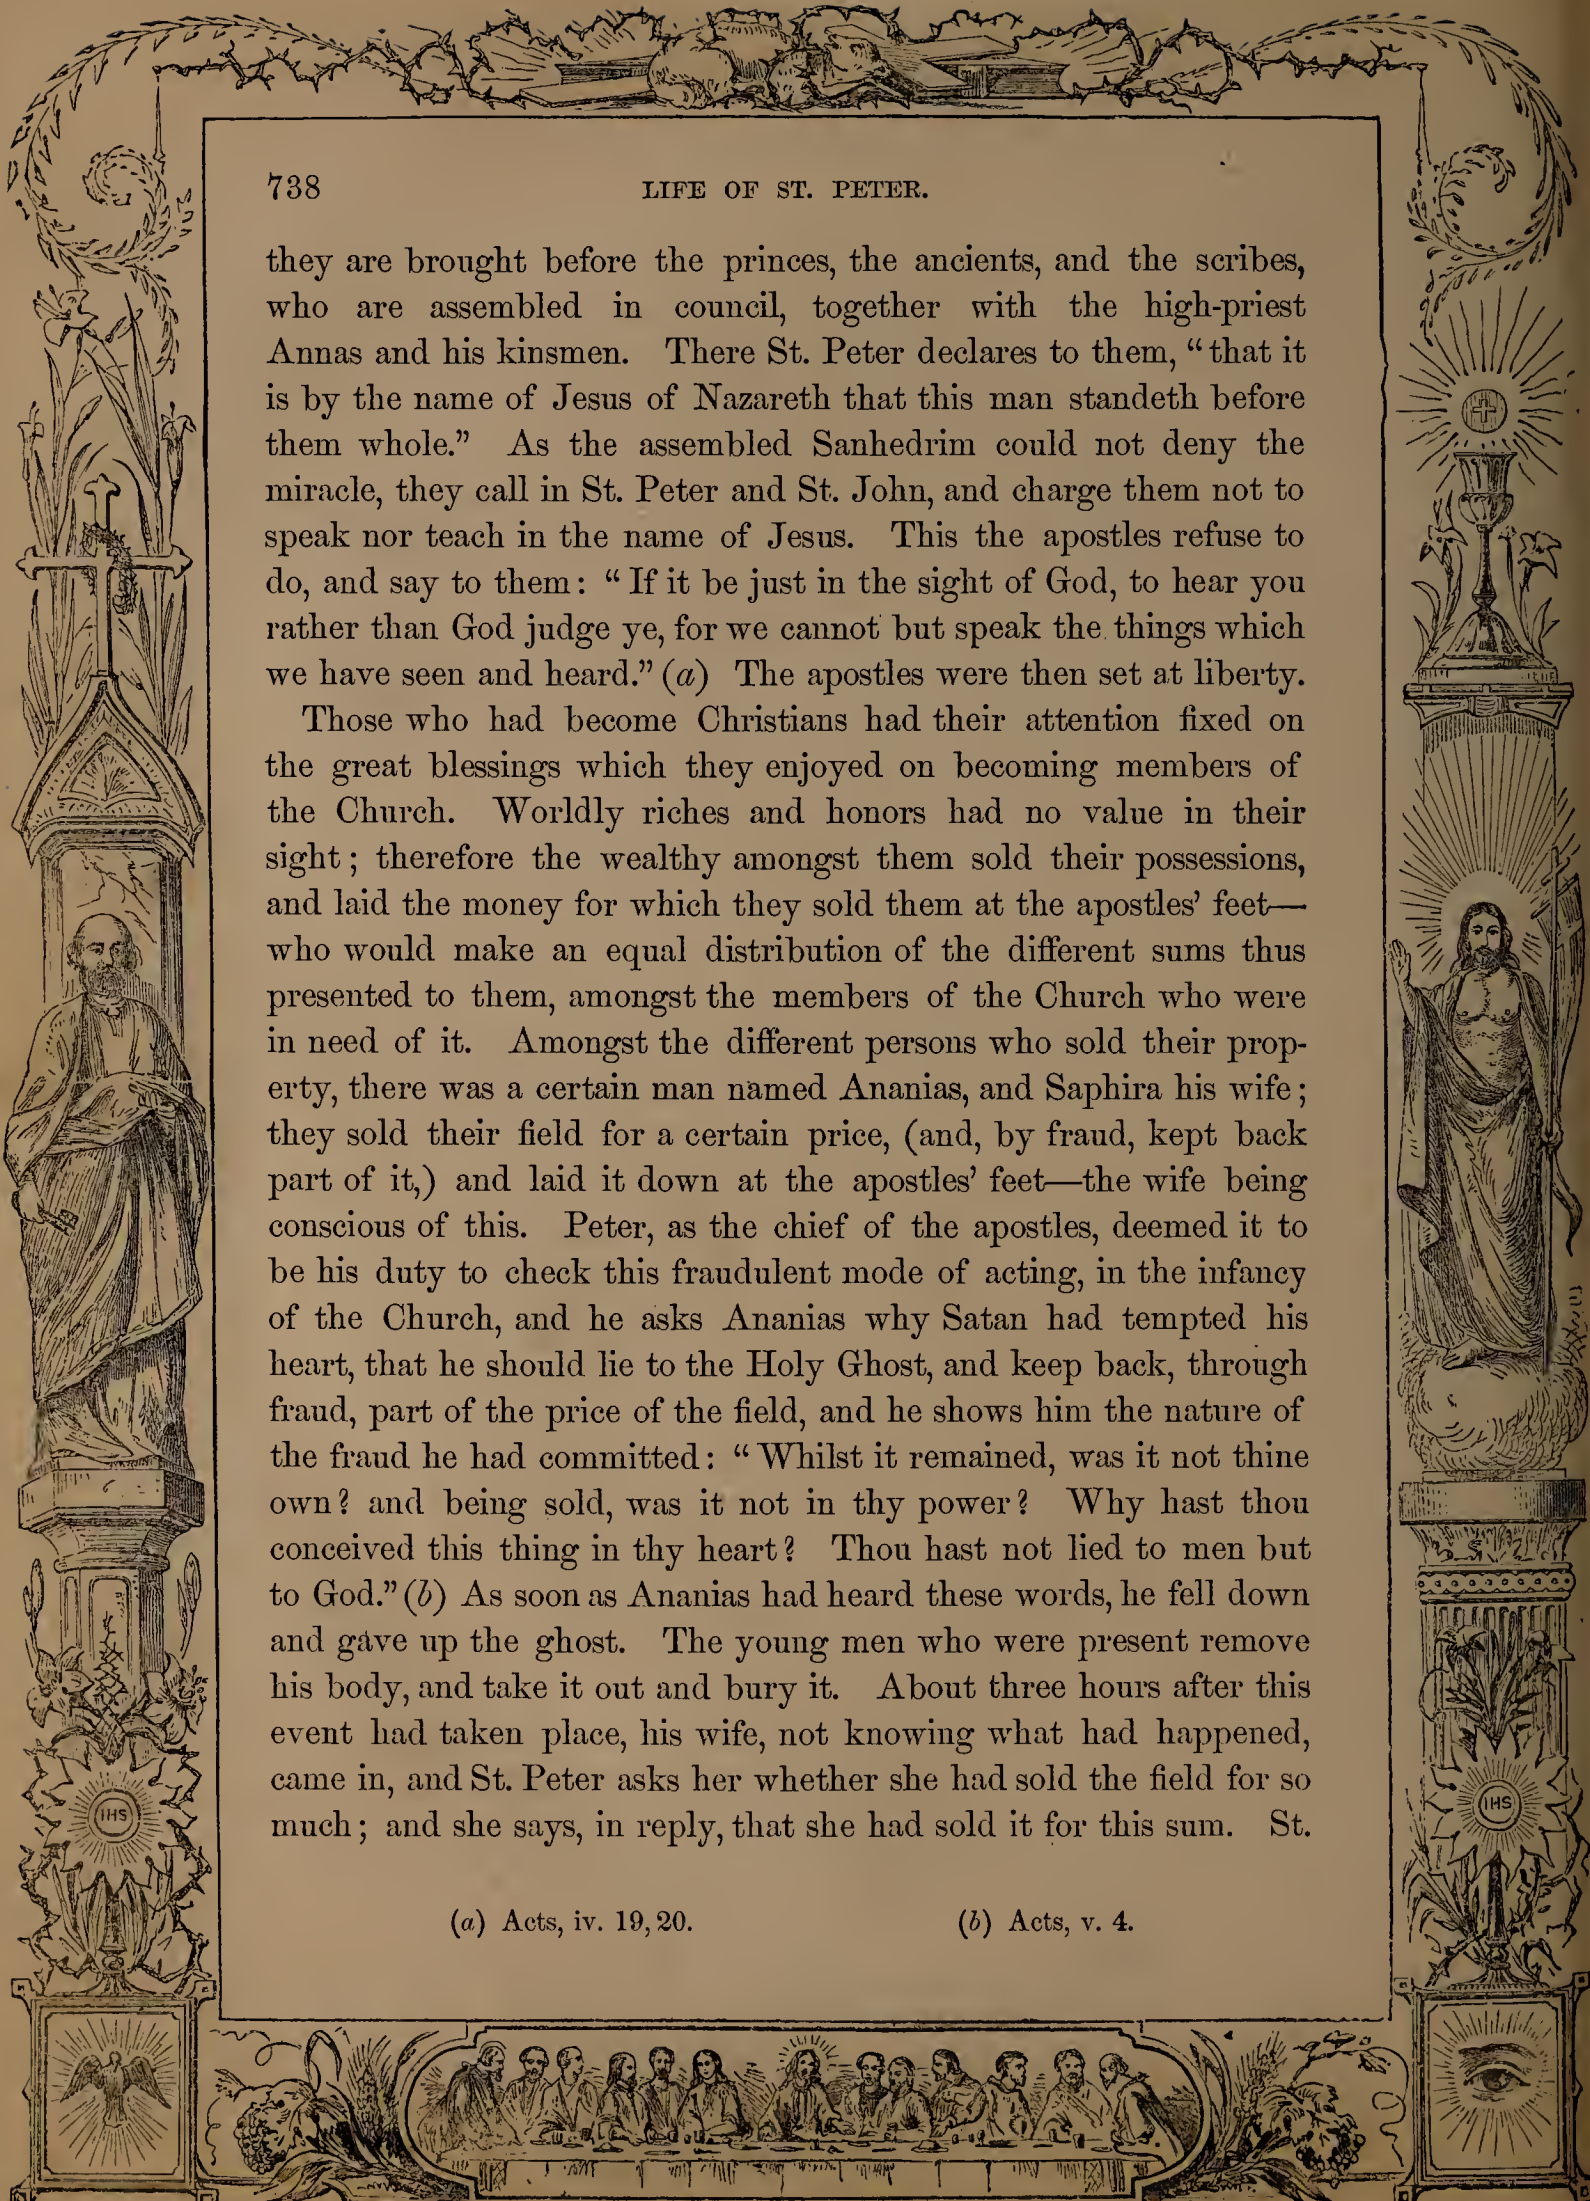 738 LIFE OF ST. PETER.
they are brought before the princes, the ancients, and the scribes,
who are assembled in council, together with the high-priest
Annas and his kinsmen. There St. Peter declares to them, “that it
is by the name of Jesus of Nazareth that this man standeth before
them whole.” As the assembled Sanhedrim could not deny the
miracle, they call in St. Peter and St. John, and charge them not to
speak nor teach in the name of Jesus. This the apostles refuse to
do, and say to them: “If it be just in the sight of God, to hear you
rather than God judge ye, for we cannot but speak the things which
we have seen and heard.” (a) The apostles were then set at liberty.
Those who had become Christians had their attention fixed on
the great blessings which they enjoyed on becoming members of
the Church. Worldly riches and honors had no value in their
sight; therefore the wealthy amongst them sold their possessions,
and laid the money for which they sold them at the apostles’ feet—
who would make an equal distribution of the different sums thus
presented to them, amongst the members of the Church who were
in need of it. Amongst the different persons who sold their prop-
erty, there was a certain man named Ananias, and Saphira his wife;
they sold their field for a certain price, (and, by fraud, kept back
part of it,) and laid it down at the apostles’ feet—the wife being
conscious of this. Peter, as the chief of the apostles, deemed it to
be his duty to check this fraudulent mode of acting, in the infancy
of the Church, and he asks Ananias why Satan had tempted his
heart, that he should lie to the Holy Ghost, and keep back, through
fraud, part of the price of the field, and he shows him the nature of
the fraud he had committed: “Whilst it remained, was it not thine
own? and being sold, was it not in thy power? Why hast thou
conceived this thing in thy heart? Thou hast not lied to men but
to God.” (b) As soon as Ananias had heard these words, he fell down
and gave up the ghost. The young men who were present remove
his body, and take it out and bury it. About three hours after this
event had taken place, his wife, not knowing what had happened,
came in, and St. Peter asks her whether she had sold the field for so
much; and she says, in reply, that she had sold it for this sum. St.
(a) Acts, iv. 19, 20. (b) Acts, v. 4.
IHS
IHS